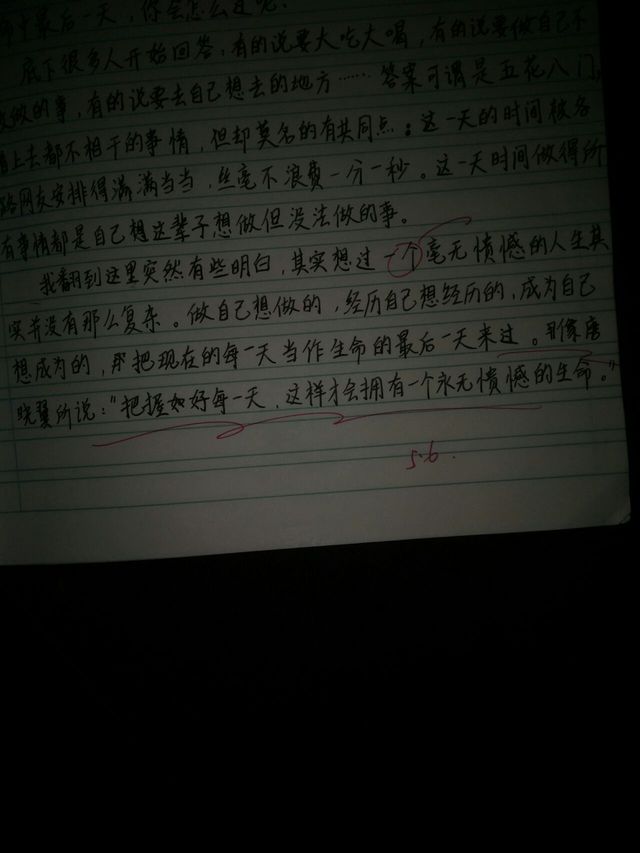 最后一天，你会怎么过呢？
底下很多人开始回答：有的说要大吃大喝，有的说要做自己不
做的事，有的说要去自己想去的地方……答案可谓是五花八门，
上去都不相干的事情，但却莫名的有共同点：这一天的时间被各
路网友安排得满满当当，丝毫不浪费一分一秒。这一天时间做得所
有事情都是自己想这辈子想做但没法做的事。
我翻到这里突然有些明白，其实想过一个毫无愤憾的人生其
实并没有那么复杂。做自己想做的，经历自己想经历的，成为自己
想成为的，那把现在的每一天当作生命的最后一天来过。就像唐
晓翼所说："把握如好每一天，这样才会拥有一个永无愤憾的生命。"
5.6.